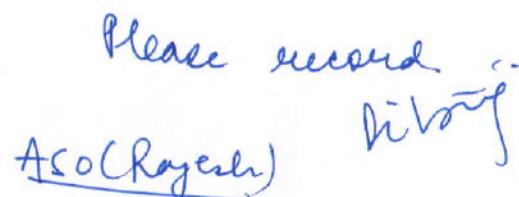 Please record..
ASO(Rajesh)